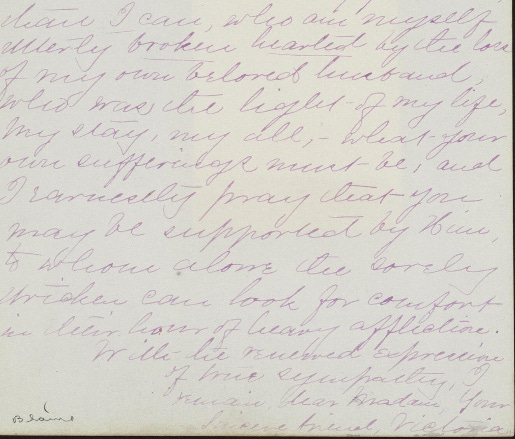 than I can, who am myself
utterly broken hearted by the loss
of my own beloved husband,
who was the light of my life,
my stay, my all, - what your
own sufferings must be, and
I earnestly pray that you
may be supported by Him,
to whom alone the sorely
stricken can look for comfort
in their hour of heavy affliction.
With the renewed expression
of true sympathy, I
remain, dear Madam, Your
Sincere friend, Victoria
Blaine